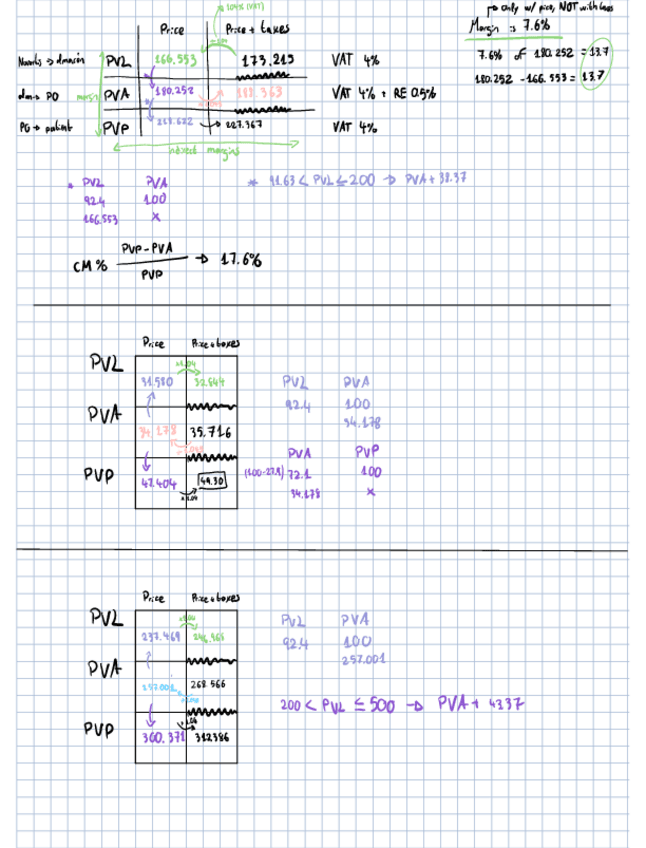 only w/ price, NOT with taxes
Margin: 7.6%
Price Price + taxes
PVL 166.553 173.215 VAT 4% 7.6% of 180.252 = 13.7
180.252 - 166.553 = 13.7
PVA 180.252 VAT 4% + RE 0.5%
PVP 227.367 VAT 4%
indirect margins
* PVL PVA * 91.63 < PVL ≤ 200 → PVA + 38.37
92.4 100
166.553 x
CM% PVP - PVA → 17.6%
PVP
Price Price + taxes
PVL
31.580 32.847 PVL PVA
92.4 100
PVA 34.178
34.178 35.716
PVA PVP
PVP (100-27.9) 72.1 100
47.404 49.30
34.178 x
Price Price + taxes
PVL
237.469 PVL PVA
92.4 100
PVA 257.001
257.001 268.566
200 < PVL ≤ 500 → PVA + 43.37
PVP
300.371 312386